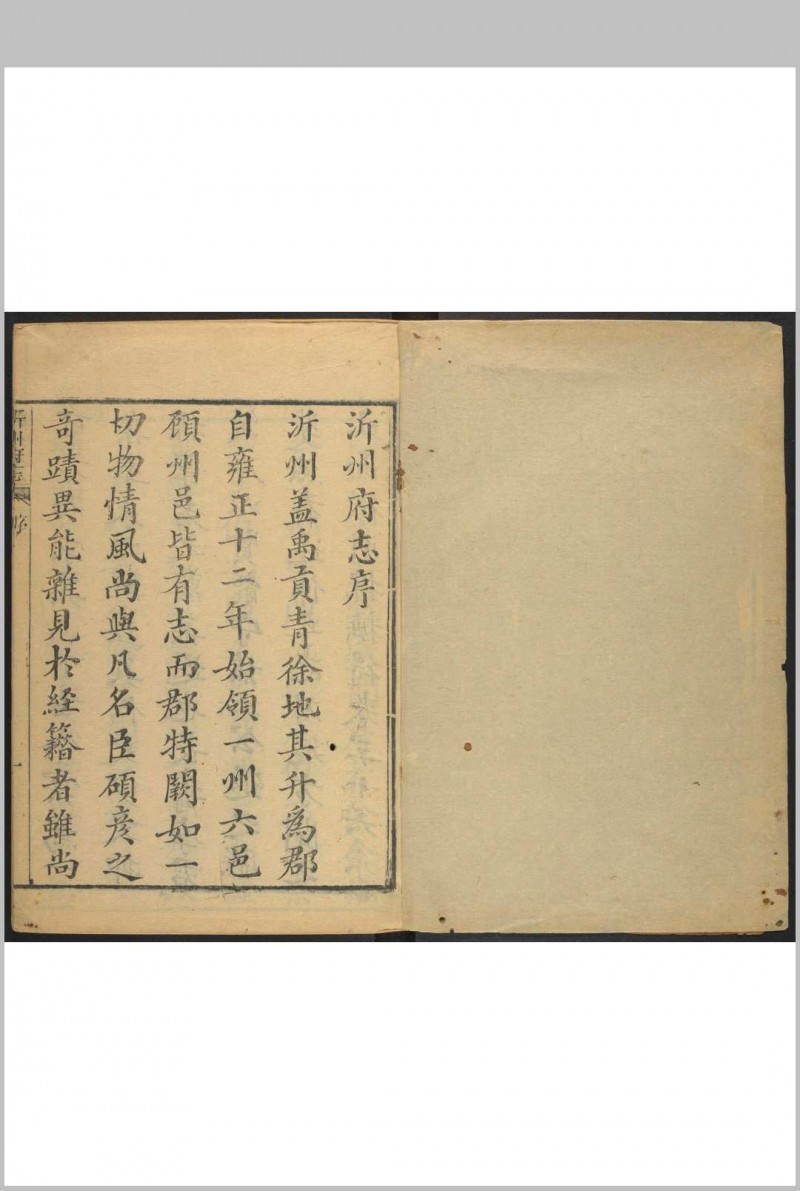 沂州府志序
沂州蓋禹貢青徐地其升為郡
自雍正十二年始領一州六邑
顧州邑皆有志而郡特闕如一
切物情風尚與凡名臣碩彦之
奇蹟異能雜見扵経籍者雖尚
沂州府志
序
一